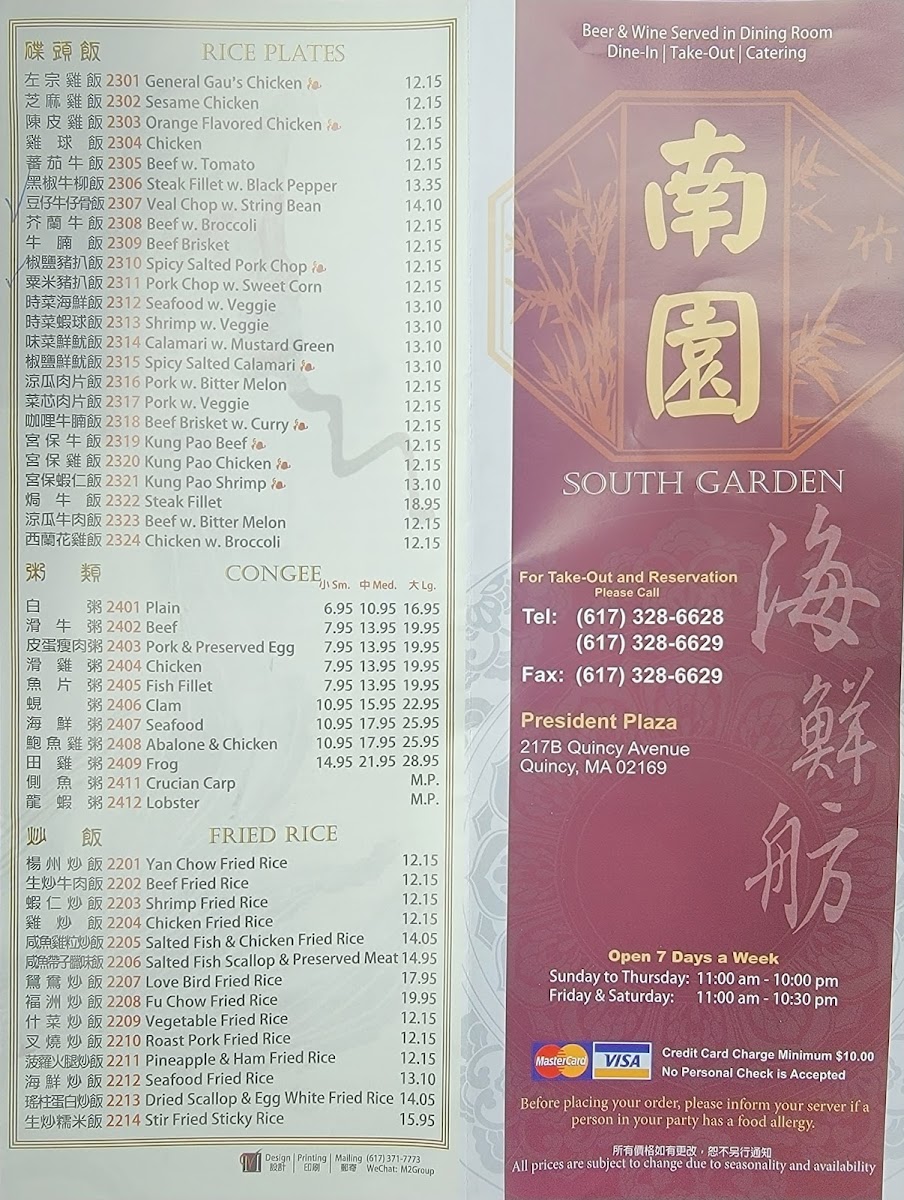 碟頭飯 RICE PLATES
左宗雞飯 2301 General Gau's Chicken 12.15
芝麻雞飯 2302 Sesame Chicken 12.15
陳皮雞飯 2303 Orange Flavored Chicken 12.15
雞球飯 2304 Chicken 12.15
蕃茄牛飯 2305 Beef w. Tomato 12.15
黑椒牛柳飯 2306 Steak Fillet w. Black Pepper 13.35
豆仔牛仔骨飯 2307 Veal Chop w. String Bean 14.10
芥蘭牛飯 2308 Beef w. Broccoli 12.15
牛腩飯 2309 Beef Brisket 12.15
椒鹽豬扒飯 2310 Spicy Salted Pork Chop 12.15
粟米豬扒飯 2311 Pork Chop w. Sweet Corn 12.15
時菜海鮮飯 2312 Seafood w. Veggie 13.10
時菜蝦球飯 2313 Shrimp w. Veggie 13.10
味菜鮮魷飯 2314 Calamari w. Mustard Green 13.10
椒鹽鮮魷飯 2315 Spicy Salted Calamari 13.10
涼瓜肉片飯 2316 Pork w. Bitter Melon 12.15
菜芯肉片飯 2317 Pork w. Veggie 12.15
咖哩牛腩飯 2318 Beef Brisket w. Curry 12.15
宮保牛飯 2319 Kung Pao Beef 12.15
宮保雞飯 2320 Kung Pao Chicken 12.15
宮保蝦仁飯 2321 Kung Pao Shrimp 13.10
焗牛飯 2322 Steak Fillet 18.95
涼瓜牛肉飯 2323 Beef w. Bitter Melon 12.15
西蘭花雞飯 2324 Chicken w. Broccoli 12.15
粥類 CONGEE 小 Sm. 中 Med. 大 Lg.
白粥 2401 Plain 6.95 10.95 16.95
滑牛粥 2402 Beef 7.95 13.95 19.95
皮蛋瘦肉粥 2403 Pork & Preserved Egg 7.95 13.95 19.95
滑雞粥 2404 Chicken 7.95 13.95 19.95
魚片粥 2405 Fish Fillet 7.95 13.95 19.95
蜆粥 2406 Clam 10.95 15.95 22.95
海鮮粥 2407 Seafood 10.95 17.95 25.95
鮑魚雞粥 2408 Abalone & Chicken 10.95 17.95 25.95
田雞粥 2409 Frog 14.95 21.95 28.95
側魚粥 2411 Crucian Carp M.P.
龍蝦粥 2412 Lobster M.P.
炒飯 FRIED RICE
楊州炒飯 2201 Yan Chow Fried Rice 12.15
生炒牛肉飯 2202 Beef Fried Rice 12.15
蝦仁炒飯 2203 Shrimp Fried Rice 12.15
雞炒飯 2204 Chicken Fried Rice 12.15
咸魚雞粒炒飯 2205 Salted Fish & Chicken Fried Rice 14.05
咸魚帶子臘味飯 2206 Salted Fish Scallop & Preserved Meat 14.95
鴛鴦炒飯 2207 Love Bird Fried Rice 17.95
福洲炒飯 2208 Fu Chow Fried Rice 19.95
什菜炒飯 2209 Vegetable Fried Rice 12.15
叉燒炒飯 2210 Roast Pork Fried Rice 12.15
菠蘿火腿炒飯 2211 Pineapple & Ham Fried Rice 12.15
海鮮炒飯 2212 Seafood Fried Rice 13.10
瑤柱蛋白炒飯 2213 Dried Scallop & Egg White Fried Rice 14.05
生炒糯米飯 2214 Stir Fried Sticky Rice 15.95
Design | Printing | Mailing (617) 371-7773
設計 | 印刷 | 郵寄 WeChat: M2Group
Beer & Wine Served in Dining Room
Dine-In | Take-Out | Catering
南園
竹
SOUTH GARDEN
海鮮舫
For Take-Out and Reservation
Please Call
Tel: (617) 328-6628
(617) 328-6629
Fax: (617) 328-6629
President Plaza
217B Quincy Avenue
Quincy, MA 02169
Open 7 Days a Week
Sunday to Thursday: 11:00 am - 10:00 pm
Friday & Saturday: 11:00 am - 10:30 pm
MasterCard VISA Credit Card Charge Minimum $10.00
No Personal Check is Accepted
Before placing your order, please inform your server if a
person in your party has a food allergy.
所有價格如有更改，恕不另行通知
All prices are subject to change due to seasonality and availability